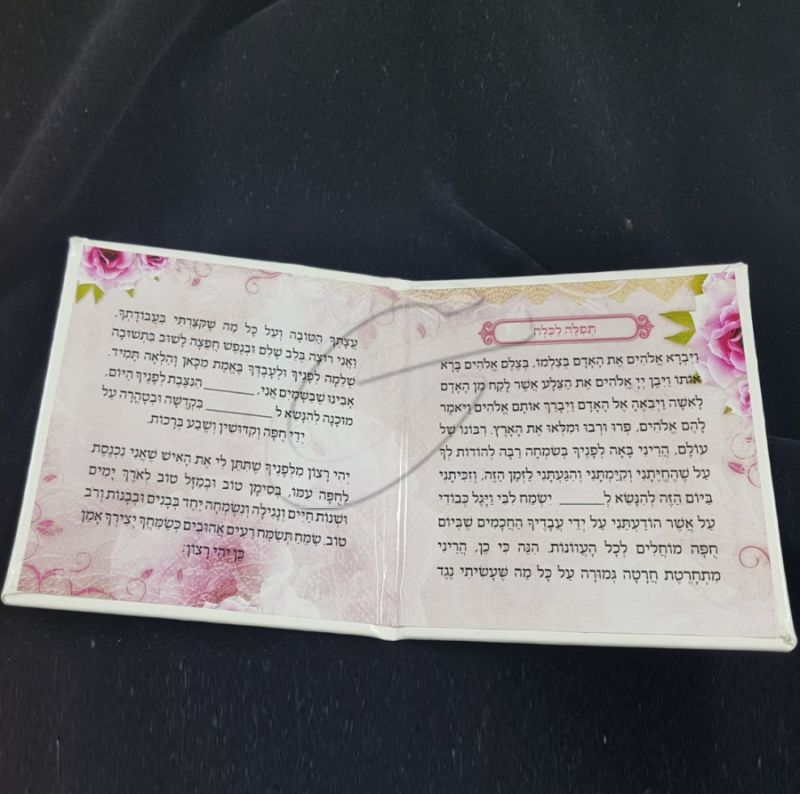 תְּפִלָּה לַכַּלָּה
וַיִּבְרָא אֱלֹהִים אֶת הָאָדָם בְּצַלְמוֹ, בְּצֶלֶם אֱלֹהִים בָּרָא
אוֹתוֹ וַיִּבֶן יְיָ אֱלֹהִים אֶת הַצֵּלָע אֲשֶׁר לָקַח מִן הָאָדָם
לְאִשָּׁה וַיְבִאֶהָ אֶל הָאָדָם וַיְבָרֶךְ אוֹתָם אֱלֹהִים וַיֹּאמֶר
לָהֶם אֱלֹהִים, פְּרוּ וּרְבוּ וּמִלְאוּ אֶת הָאָרֶץ. רִבּוֹנוֹ שֶׁל
עוֹלָם, הֲרֵינִי בָּאָה לְפָנֶיךָ בְּשִׂמְחָה רַבָּה לְהוֹדוֹת לְךָ
עַל שֶׁהֶחֱיִיתָנִי וְקִיַּמְתָּנִי וְהִגַּעְתָּנִי לַזְּמַן הַזֶּה, וְזִכִּיתָנִי
בַּיּוֹם הַזֶּה לְהִנָּשֵׂא לְ______ יִשְׂמַח לִבִּי וַיָּגֶל כְּבוֹדִי
עַל אֲשֶׁר הוֹדַעְתַּנִי עַל יְדֵי עֲבָדֶיךָ הַחֲכָמִים שֶׁבְּיוֹם
חֻפָּה מוֹחֲלִים לְכָל הָעֲוֹנוֹת. הִנֵּה כִּי כֵן, הֲרֵינִי
מִתְחָרֶטֶת חֲרָטָה גְּמוּרָה עַל כָּל מַה שֶּׁעָשִׂיתִי נֶגֶד
עֲצָתְךָ הַטּוֹבָה וְעַל כָּל מַה שֶּׁקִּצַּרְתִּי בַּעֲבוֹדָתְךָ.
וַאֲנִי רוֹצָה בְּלֵב שָׁלֵם וּבְנֶפֶשׁ חֲפֵצָה לָשׁוּב בִּתְשׁוּבָה
שְׁלֵמָה לְפָנֶיךָ וּלְעָבְדְּךָ בֶּאֱמֶת מִכָּאן וְהָלְאָה תָּמִיד.
אָבִינוּ שֶׁבַּשָּׁמַיִם אֲנִי. ________ הַנִּצֶּבֶת לְפָנֶיךָ הַיּוֹם,
מוּכָנָה לְהִנָּשֵׂא לְ __________ בִּקְדֻשָּׁה וּבְטָהֳרָה עַל
יְדֵי חֻפָּה וְקִדּוּשִׁין וְשֶׁבַע בְּרָכוֹת.
יְהִי רָצוֹן מִלְּפָנֶיךָ שֶׁתִּתֵּן לִי אֶת הָאִישׁ שֶׁאֲנִי נִכְנֶסֶת
לַחֻפָּה עִמּוֹ, בְּסִימָן טוֹב וּבְמַזָּל טוֹב לְאֹרֶךְ יָמִים
וּשְׁנוֹת חַיִּים וְנָגִילָה וְנִשְׂמְחָה יַחַד בְּבָנִים וּבְבָנוֹת וְרֹב
טוֹב. שַׂמֵּחַ תְּשַׂמַּח רֵעִים אֲהוּבִים כְּשַׂמֵּחֲךָ יְצִירְךָ אָמֵן
כֵּן יְהִי רָצוֹן: